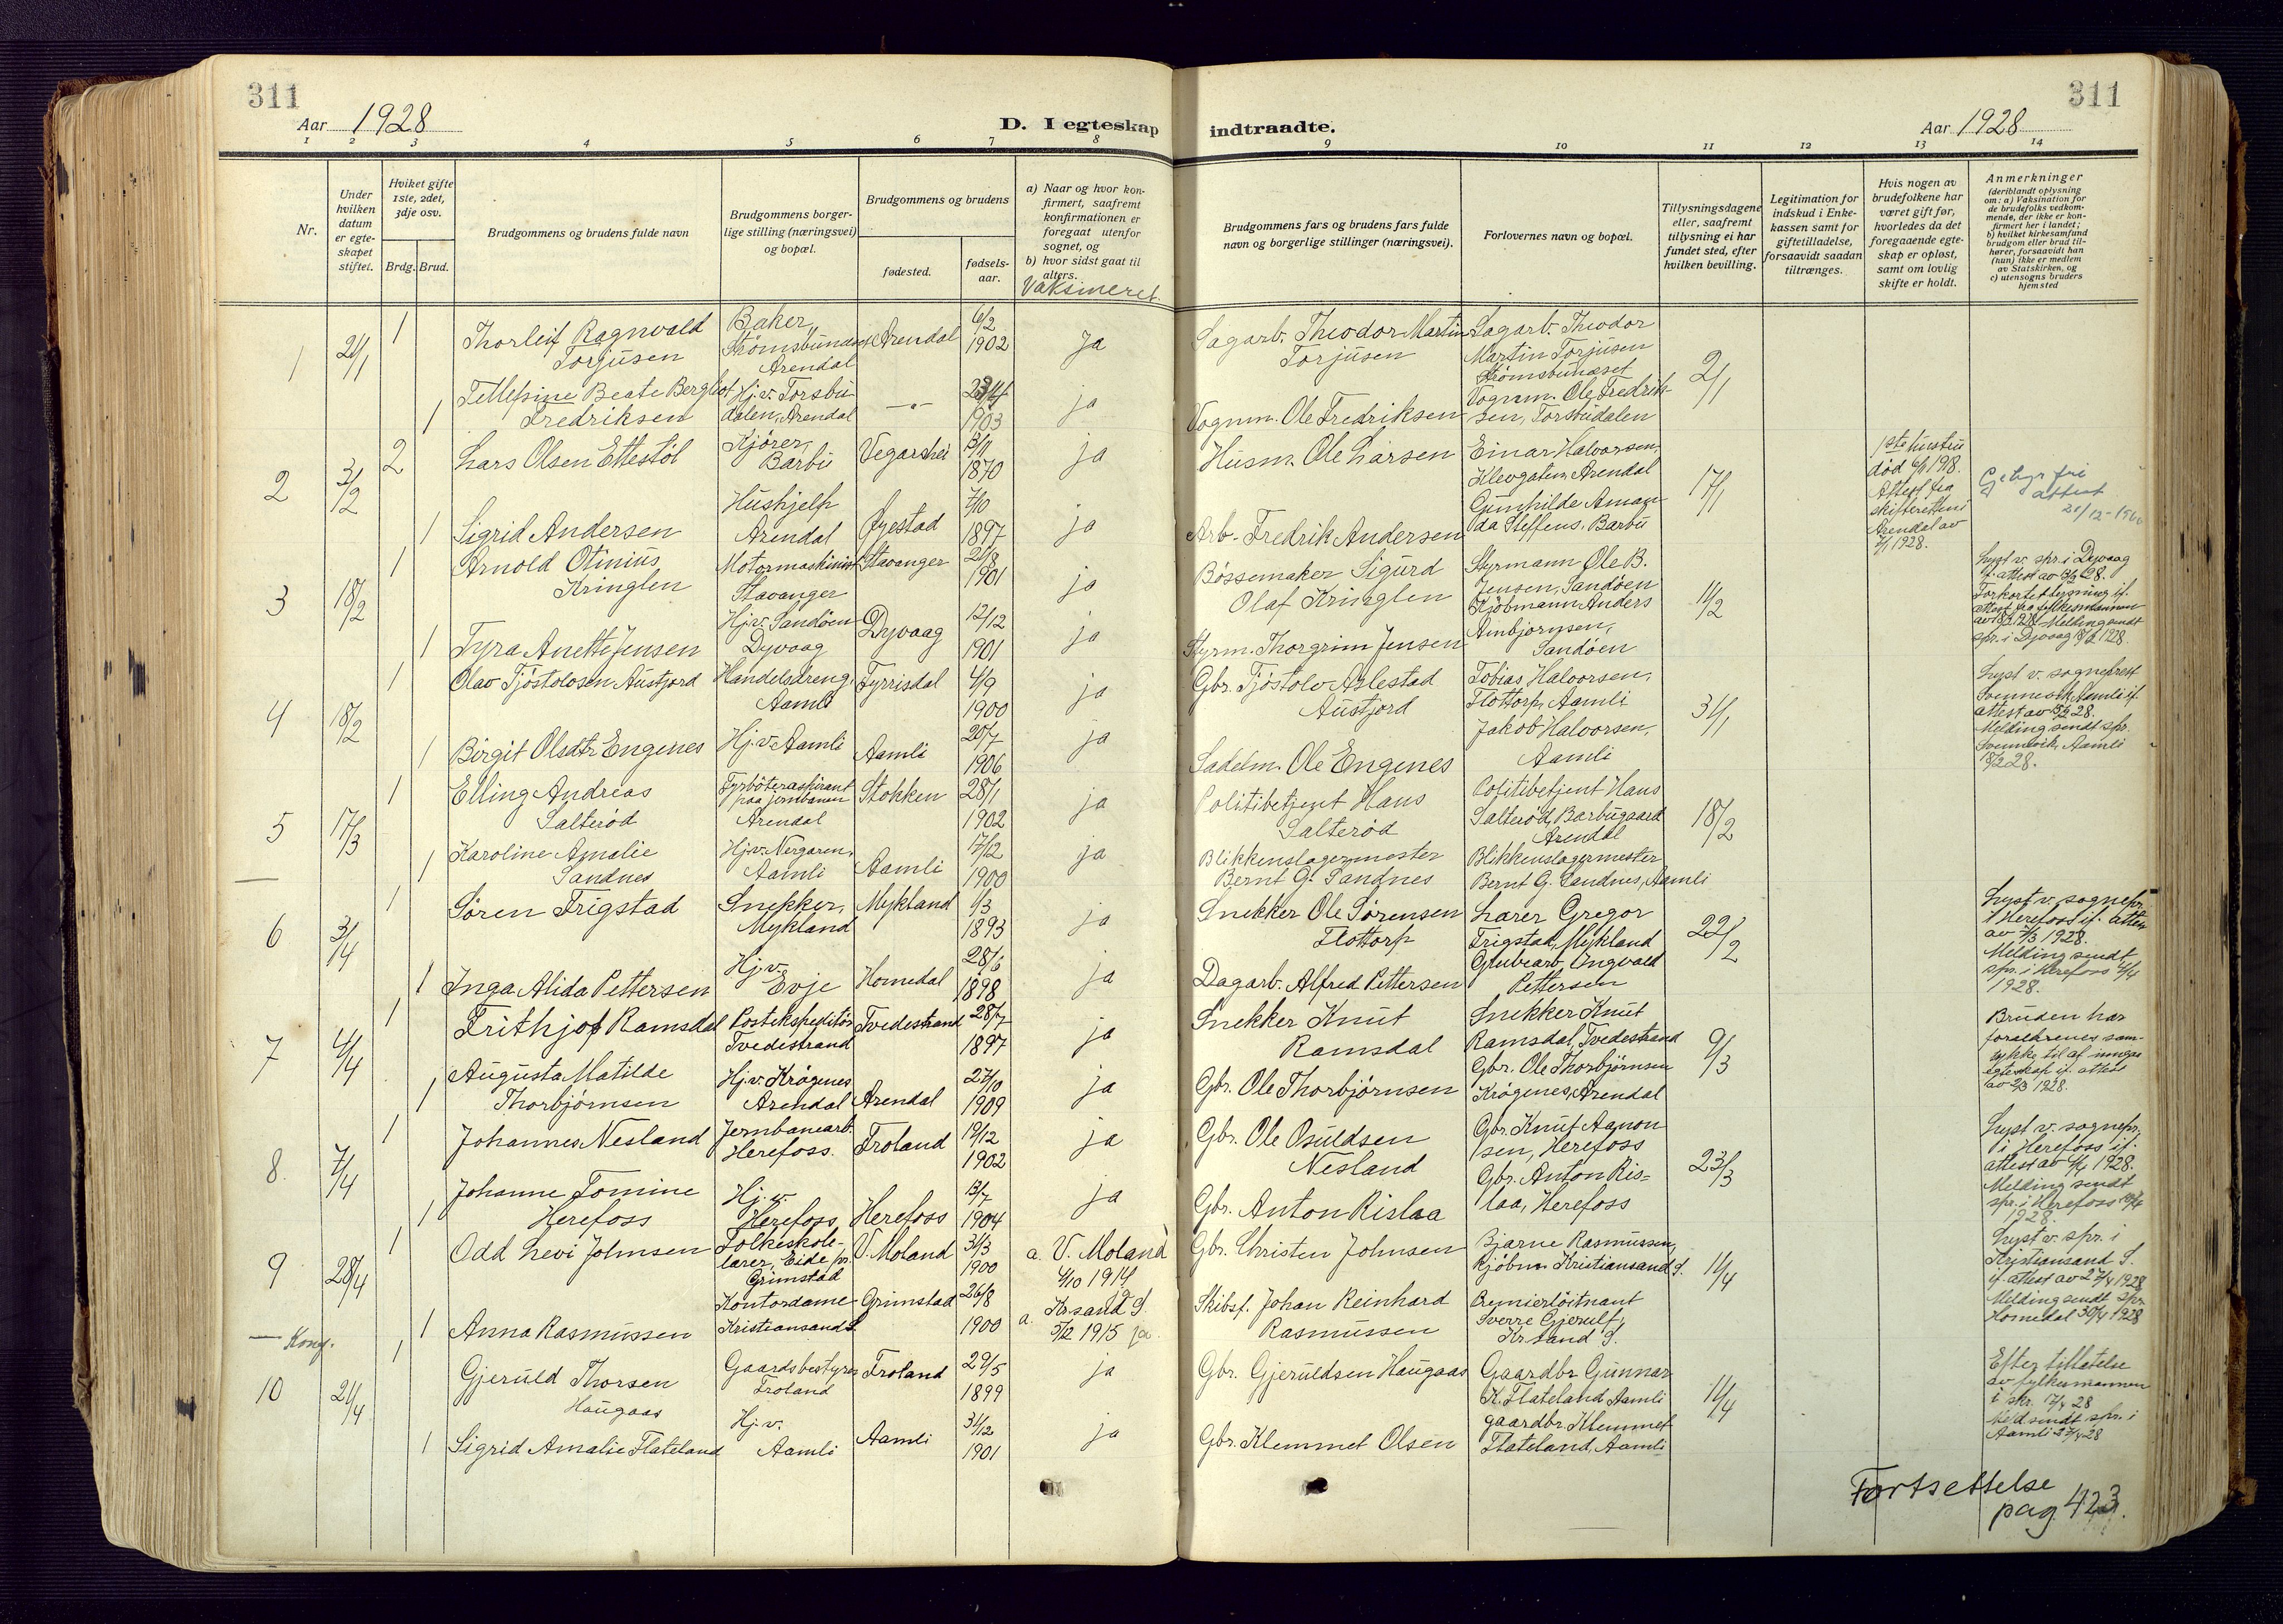 311
Aar 1928
D. I egteskap
1 2 3 4 5 6 7 8
Nr.
Under hvilken datum er egteskapet stiftet.
Hviket gifte 1ste, 2det, 3dje osv.
Brdg. Brud.
Brudgommens og brudens fulde navn
Brudgommens borgerlige stilling (næringsvei) og bopæl.
Brudgommens og brudens
fødested.
fødselsaar.
a) Naar og hvor konfirmert, saafremt konfirmationen er foregaat utenfor sognet, og
b) hvor sidst gaat til alters.
Vaksineret.
1 21/1 1 Thorleif Ragnvald Torjusen Baker, Arendal Arendal 6/2 1902 Ja
1 Beate Bergliot Fredriksen Hj.v. Torsbudalen, Arendal —"— 1903 ja
2 3/2 2 Lars Olsen Ettestöl Kjörer, Barbu Vegarshei 13/11 1870 ja
1 Sigrid Andersen Hushjelp Arendal Øyestad 7/10 1897 ja
3 18/2 1 Arnold Otinius Kringlen Motormaskinist Stavanger Stavanger 21/8 1901 ja
1 Tyra Anette Jensen Hj.v. Sandöen Dyvaag Dyvaag 12/12 1901 ja
4 18/2 1 Olav Tjöstolvsen Austjord Handelsdreng, Aamli Fyrrisdal 4/9 1900 ja
1 Birgit Olsdtr. Engenes Hj.v. Aamli Aamli 20/7 1906 ja
5 17/3 1 Elling Andreas Salterød Fyrböteraspirant paa jernbanen Arendal Stokken 28/1 1902 ja
1 Karoline Amalie Sandnes Hj.v. Nergaren, Aamli Aamli 17/12 1900 ja
6 3/4 1 Sören Frigstad Snekker, Mykland Mykland 1/3 1893 ja
1 Inga Alida Pettersen Hj.v. Evje Homedal 28/6 1898 ja
7 4/4 1 Frithjof Ramsdal Postekspeditör Tvedestrand Tvedestrand 28/7 1897 ja
1 Augusta Matilde Thorbjörnsen Hj.v. Krögenes Arendal Arendal 27/10 1909 ja
8. 7/4 1 Johannes Nesland Jernbanearb. Herefoss. Froland 19/12 1902 ja
1 Johanne Tomine Herefoss Hj.v. Herefoss Herefoss 13/7 1904 ja
9 28/4 1 Odd Levi Johnsen Folkeskolelærer, Eide pr. Grimstad V. Moland 31/3 1900 a. V. Moland 4/10 1914
1 Anna Rasmussen Kontordame Kristiansand S. Grimstad 26/8 1900 a. Kr.sand S. 5/12 1915 ja
10 21/4 1 Gjeruld Thorsen Haugaas Gaardsbestyrer Froland Froland 29/5 1899 ja
1 Sigrid Amalie Flateland Hj.v. Aamli Aamli 31/12 1901 ja
311
Aar 1928
indtraadte.
9 10 11 12 13 14
Brudgommens fars og brudens fars fulde navn og borgerlige stillinger (næringsvei).
Forlovernes navn og bopæl.
Tillysningsdagene eller, saafremt tillysning ei har fundet sted, efter hvilken bevilling.
Legitimation for indskud i Enkekassen samt for giftetilladelse, forsaavidt saadan tiltrænges.
Hvis nogen av brudefolkene har været gift før, hvorledes da det foregaaende egteskap er opløst, samt om lovlig skifte er holdt.
Anmerkninger
(deriblandt oplysning om: a) Vaksination for de brudefolks vedkommende, der ikke er konfirmert her i landet; b) hvilket kirkesamfund brudgom eller brud tilhører, forsaavidt han (hun) ikke er medlem av Statskirken, og c) utensogns bruders hjemsted
Sagarb. Theodor Martin Torjusen Sagarb. Theodor Martin Torjusen 2/1
Vognm. Ole Fredriksen Vognm. Ole Fredriksen, Torsbudalen
Husm. Ole Larsen Einar Halvorsen, Klevgaten, Arendal 17/1 1ste hustru død Attest fra skifteretten i Arendal av 1928. Gebyrfri attest
Arb. Fredrik Andersen Gunhilde Amanda Steffens. Barbu
Bössemaker Sigurd Olaf Kringlen Styrmann Ole B. Jensen, Sandöen 11/2 Lyst v. spr. i Dyvaag if. attest av 28. Forkortet lysning if. attest fra fylkesmannen Melding sendt spr. i Dyvaag 18/2 1928.
Styrm. Thorgrim Jensen Kjöbmann Anders Ambjornsen, Sandöen
Gbr. Tjöstolv Aslestad Austjord Tobias Halvorsen, Flottorp, Aamli 31/1 Lyst v. sogneprest Svennevik, Aamli if. attest av 28. Melding sendt spr. Svennevik, Aamli 18/2 28.
Sadelm. Ole Engenes Jakob Halvorsen, Aamli
Politibetjent Hans Salteröd Politibetjent Hans Salteröd, Barbugaard Arendal 18/2
Blikkenslagermester Bernt G. Sandnes Blikkenslagermester Bernt G. Sandnes, Aamli
Snekker Ole Sørensen Flottorp Lærer Gregor Frigstad, Mykland 22/2 Lyst v. sognepr. i Herefoss if. attest av 1928. Melding sendt spr. i Herefoss 4/4 1928.
Dagarb. Alfred Pettersen Grubearb. Ingvald Pettersen
Snekker Knut Ramsdal Snekker Knut Ramsdal, Tvedestrand 9/3 Bruden har foreldrenes samtykke til at inngaa egteskap if. attest av 2/3 1928.
Gbr. Ole Thorbjörnsen Gbr. Ole Thorbjörnsen Krögenes, Arendal
Gbr. Ole Osuldsen Nesland Gbr. Knut Aanonsen, Herefoss 23/3 Lyst v. sognepr. i Herefoss if. attest av 1928. Melding sendt spr. i Herefoss 1928.
Gbr. Anton Rislaa Gbr. Anton Rislaa, Herefoss
Gbr. Christen Johnsen Bjarne Rasmussen, Kjöbm. Kristiansand S. 11/4 Lyst v. spr. i Kristiansand S. if. attest av 27/4 1928 Melding sendt spr. Homedal 30/4 1928
Skibsf. Johan Reinhard Rasmussen Premierlöitnant Sverre Gjerulf, Kr.sand S.
Gbr. Gjeruldsen Haugaas Gaardbr. Gunnar K. Flateland, Aamli 11/4 Efter tillatelse av fylkesmannen i skr. 17/4 28 Meld. sendt spr. i Aamli 28
Gbr. Klemmet Olsen gaardbr. Klemmet Flateland, Aamli
Fortsettelse
pag. 423.